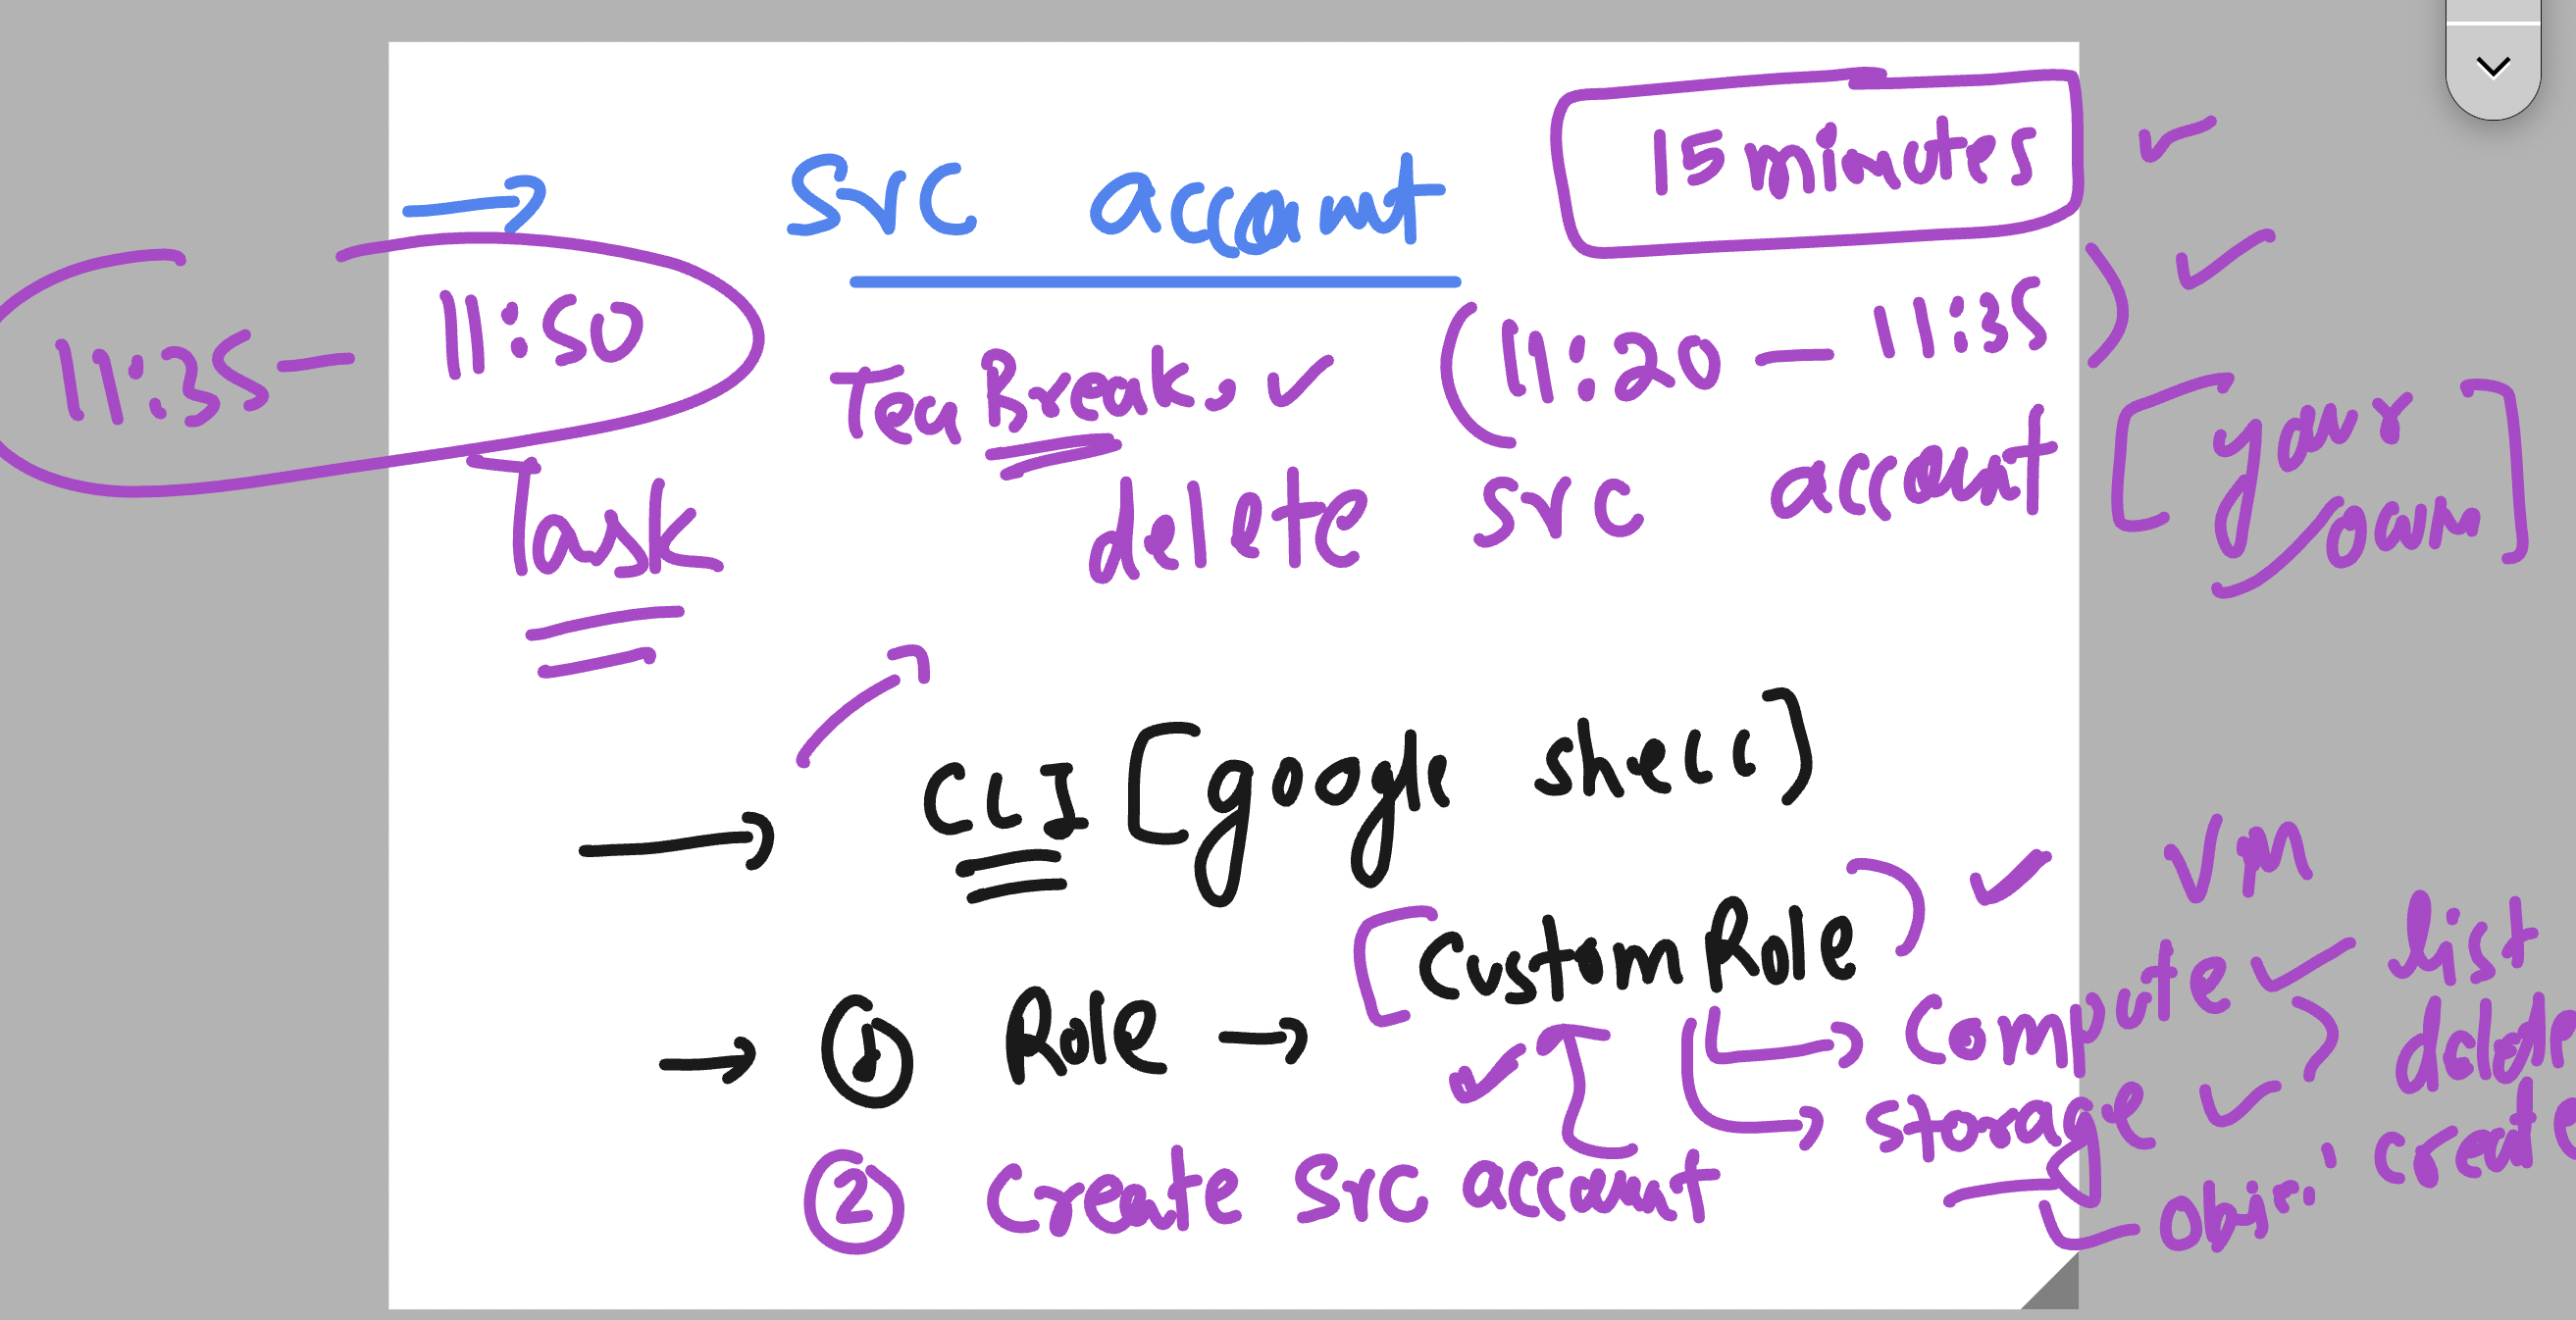 src account
15 minutes
11:35 - 11:50
Tea Break. (11:20 - 11:35)
Task
delete src account [your own]
CLI [google shell]
① Role → [Custom Role)
VM
Compute list
delete
storage create
obj...
② Create src account